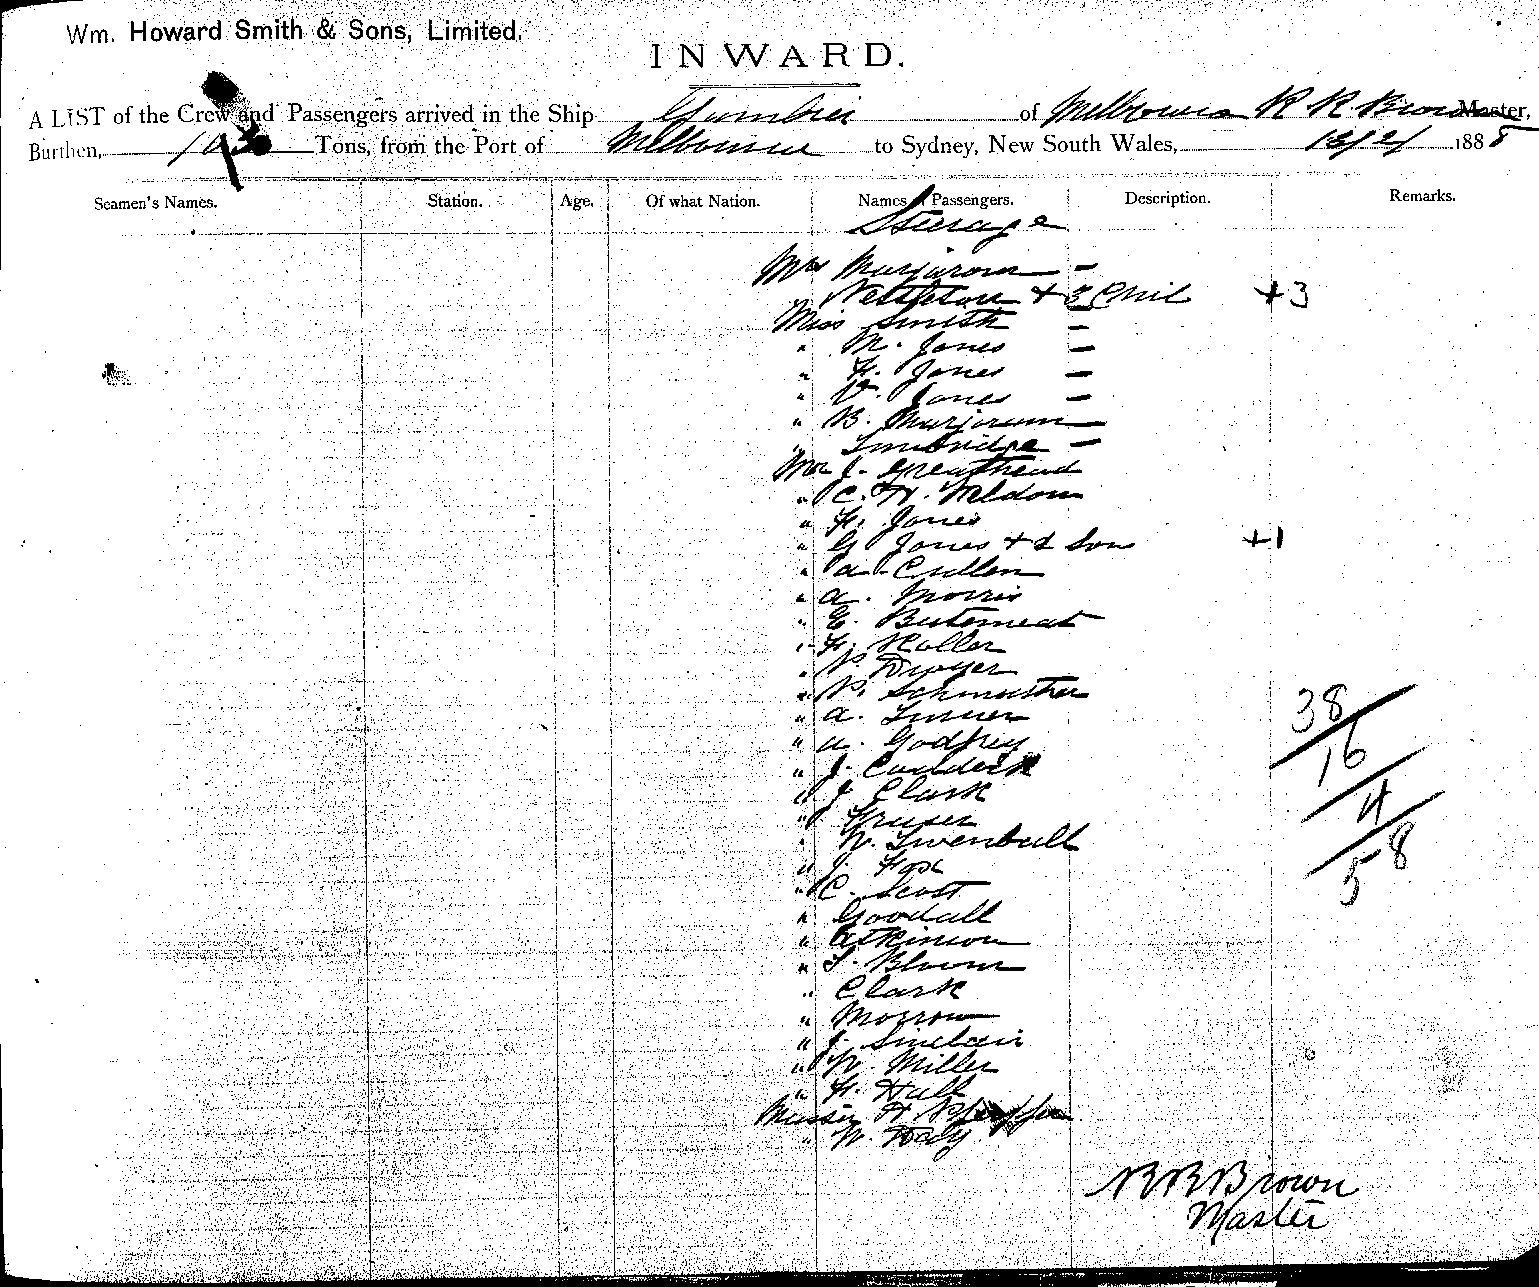 Wm. Howard Smith & Sons, Limited.
INWARD.
A LIST of the Crew and Passengers arrived in the Ship Gambier of Melbourne R R Brown Master,
Burthen, Tons, from the Port of Melbourne to Sydney, New South Wales, 13/2/ 1888
Seamen's Names. Station. Age. Of what Nation. Names of Passengers. Description. Remarks.
Steerage
Mrs Marjoram -
Nettleton + 3 Chil +3
Miss Smith -
" M. Jones -
" F. Jones -
" V. Jones -
" B. Marjoram
" -
Mr J. Greathead
" C. H. Meldon
" F. Jones
" G Jones + 1 Son +1
" A Cullen
" A. Morris
" E.
" F. Haller
" P. Dwyer
" P.
" A. Turner
" A. Godfrey
" J.
" J Clark
"
" W. Swenball
" J. Fox
" C. Scott
" Goodall
" Atkinson
" T. Bloom
" Clark
" Morrow
" J. Sinclair
" W. Miller
" F. Hall
H.
" W.
38
16
4
58
R R Brown
Master